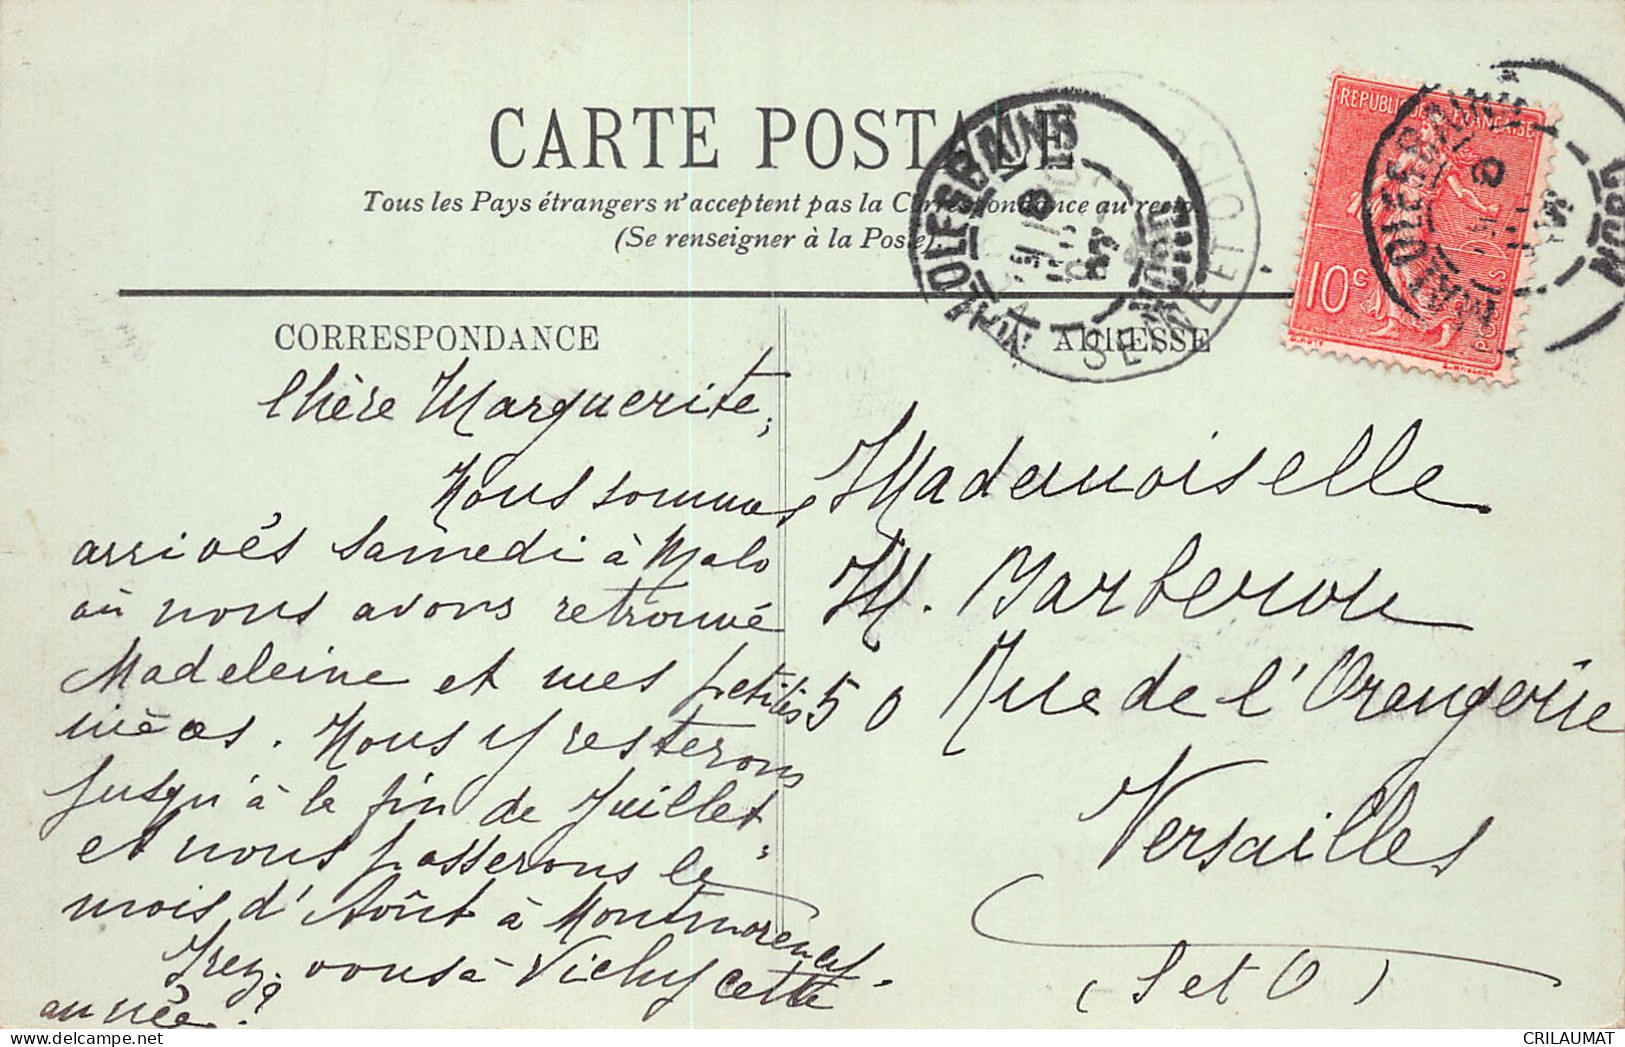 CARTE POSTALE
Tous les Pays étrangers n'acceptent pas la Correspondance au recto
(Se renseigner à la Poste)
REPUBLIQUE FRANÇAISE
10c
POSTES
MALO LES BAINS
NORD
MALO LES BAINS
NORD
SEINE ET OISE
CORRESPONDANCE
ADRESSE
Chère Marguerite,
Nous sommes
arrivés samedi à Malo
où nous avons retrouvé
Madeleine et mes petites
nièces. Nous y resterons
jusqu'à la fin de Juillet
et nous passerons le
mois d'Août à Montmorency.
Irez-vous à Vichy cette
année ?
Mademoiselle
M. Barberon
50 Rue de l'Orangerie
Versailles
(S et O)
CRILAUMAT